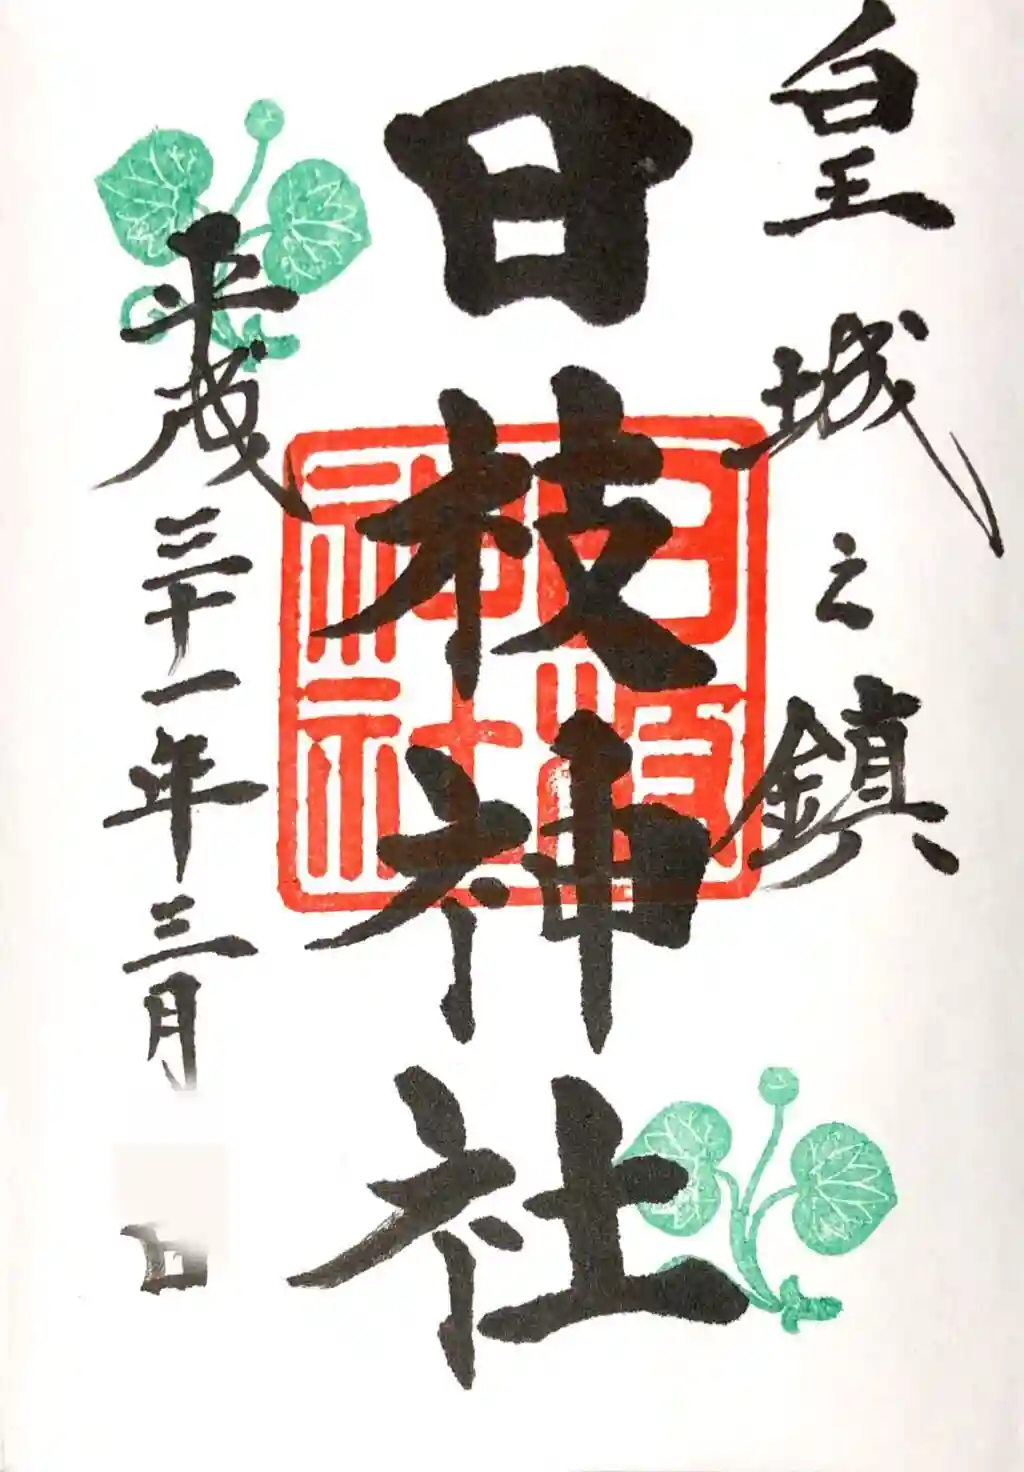 皇城之鎮
日枝神社
日枝神社
平成三十一年三月 日